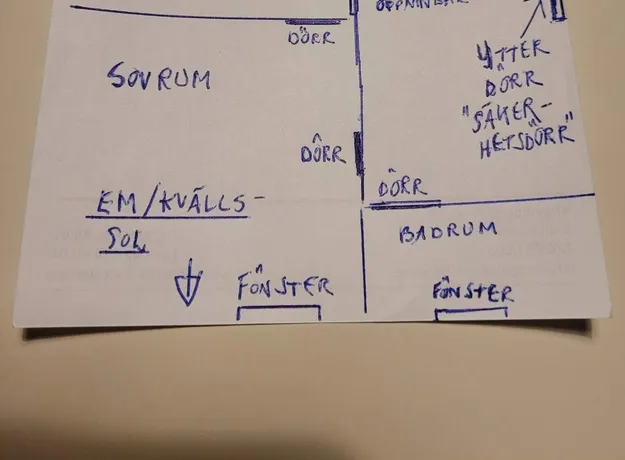 ÖPPNINGAR
DÖRR
SOVRUM
YTTER
DÖRR
"SÄKER-
HETSDÖRR"
DÖRR
DÖRR
EM/KVÄLLS-
SOL
BADRUM
FÖNSTER
FÖNSTER